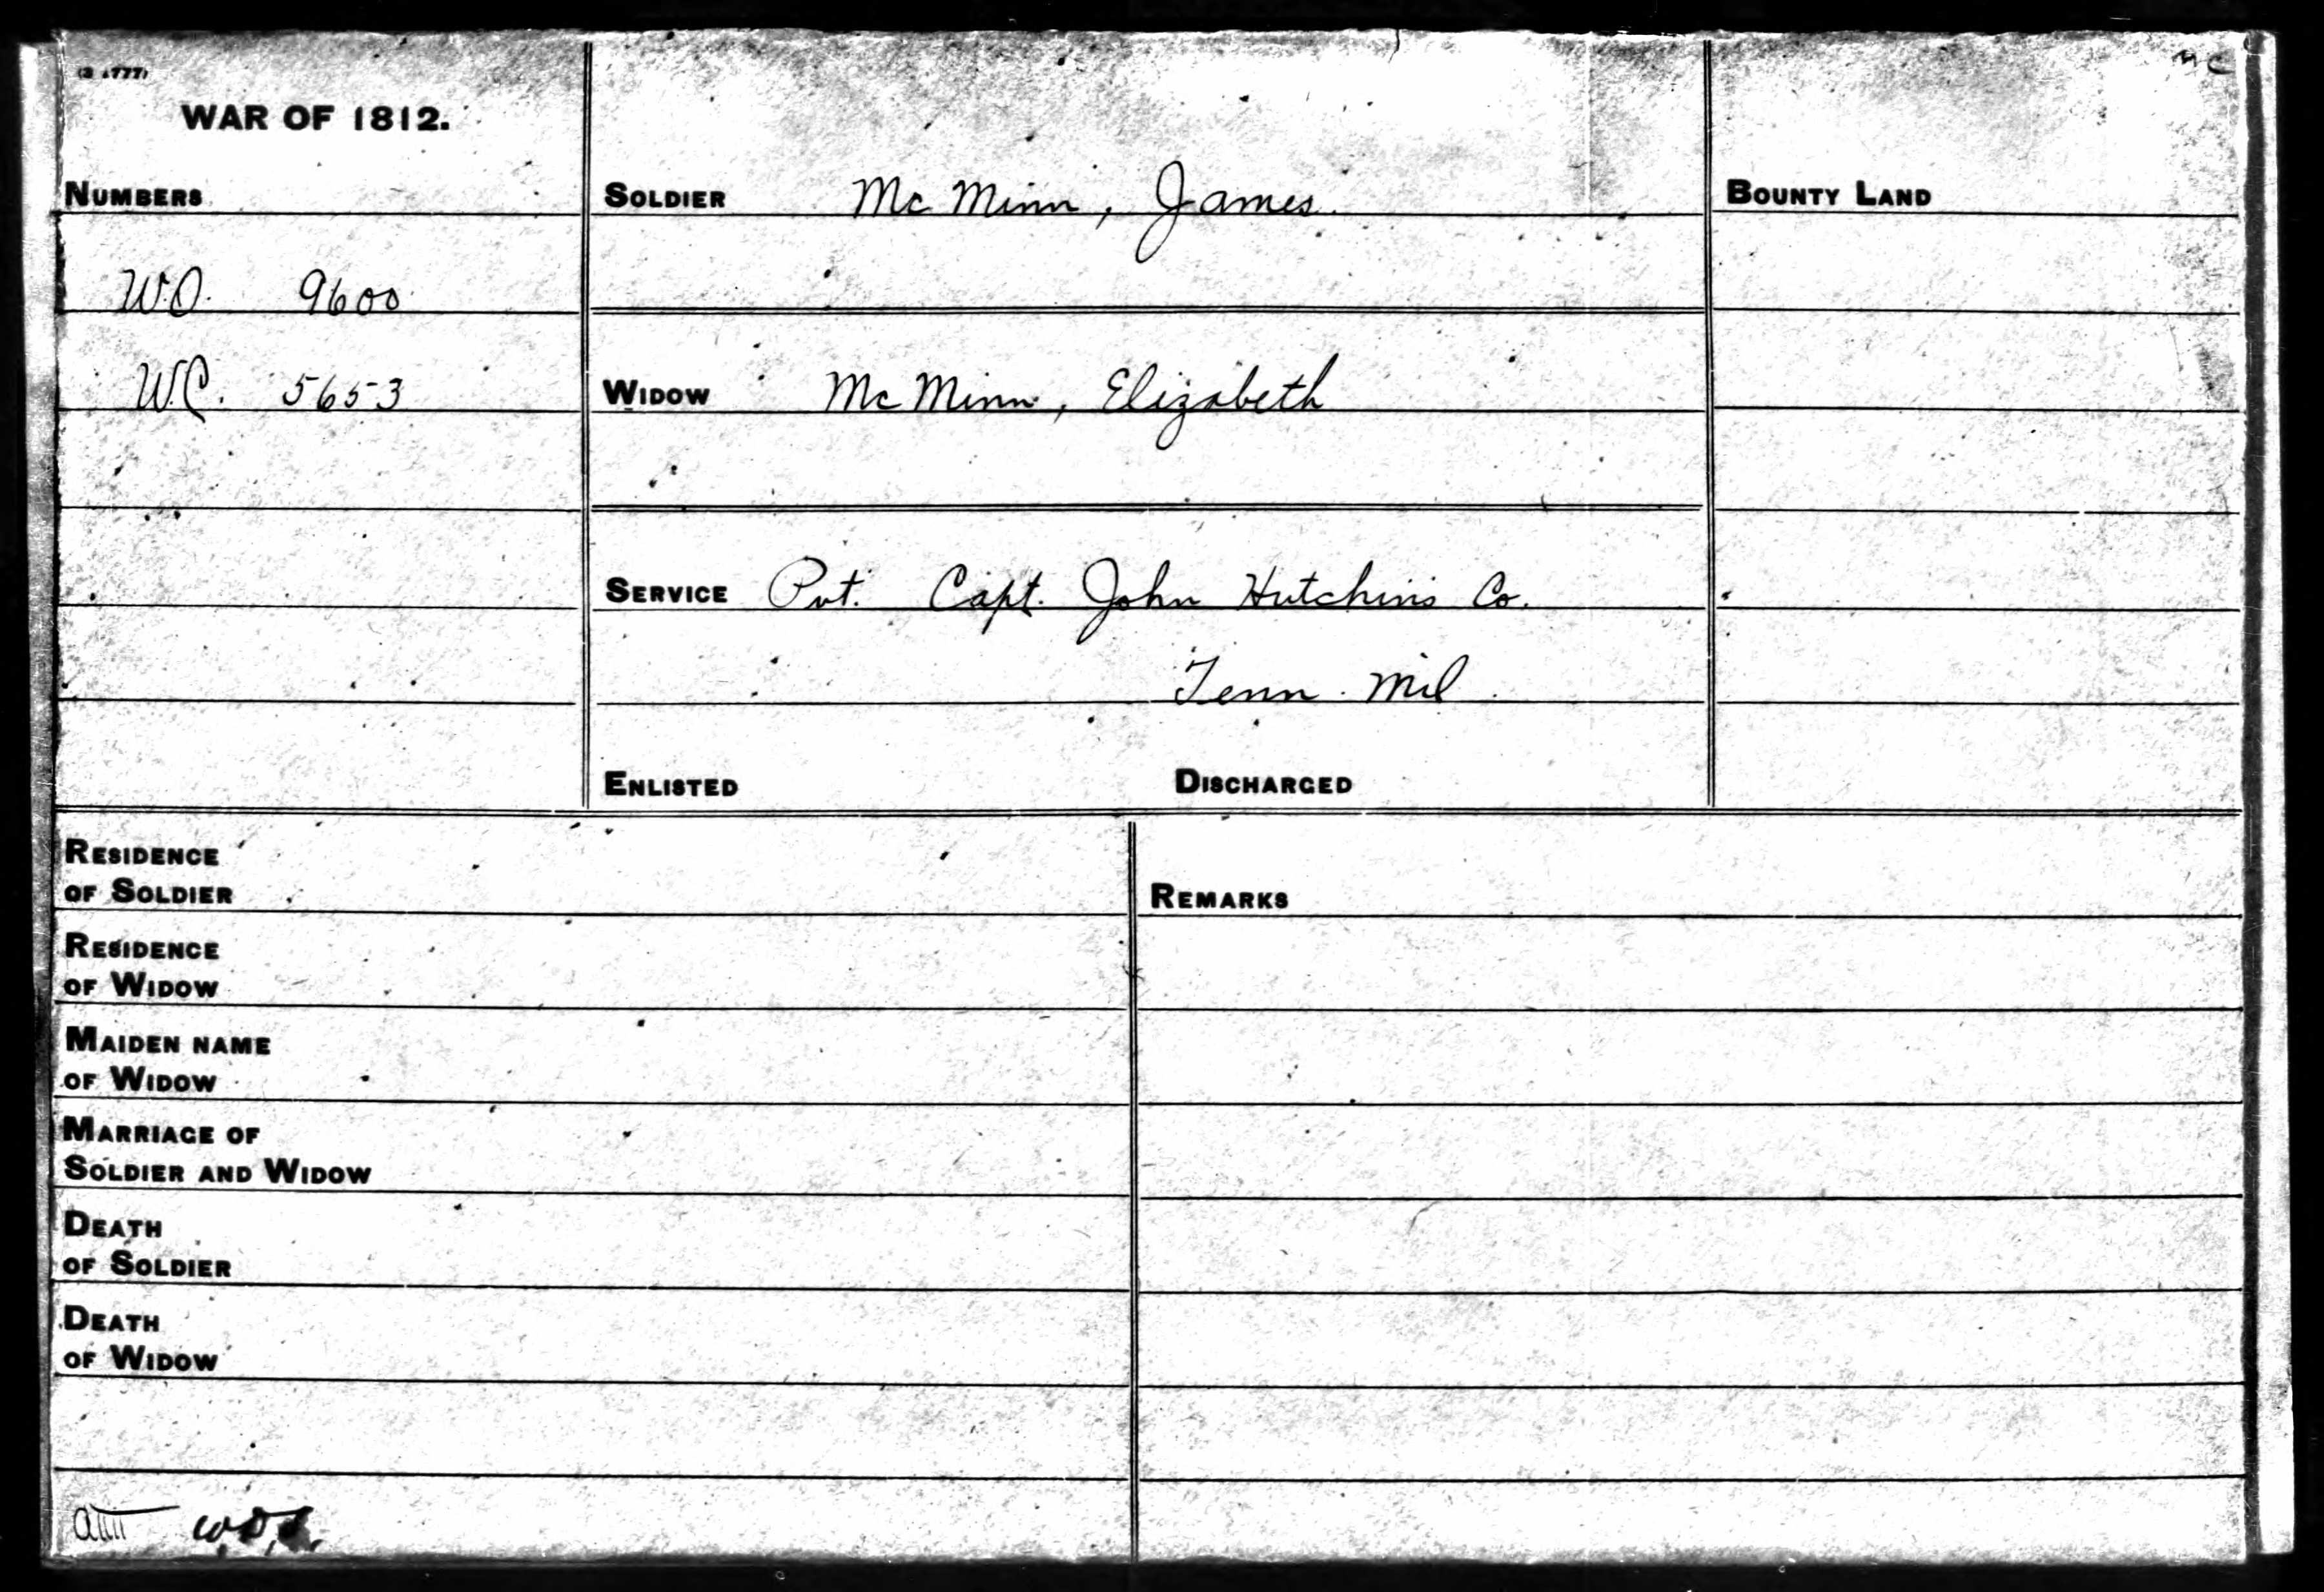 WAR OF 1812.
NUMBERS
W.O. 9600
W.C. 5653
SOLDIER Mc Minn, James.
WIDOW Mc Minn, Elizabeth
SERVICE Pvt. Capt. John Hutchins Co.
Tenn. Mil.
ENLISTED DISCHARGED
BOUNTY LAND
RESIDENCE
OF SOLDIER
RESIDENCE
OF WIDOW
MAIDEN NAME
OF WIDOW
MARRIAGE OF
SOLDIER AND WIDOW
DEATH
OF SOLDIER
DEATH
OF WIDOW
REMARKS